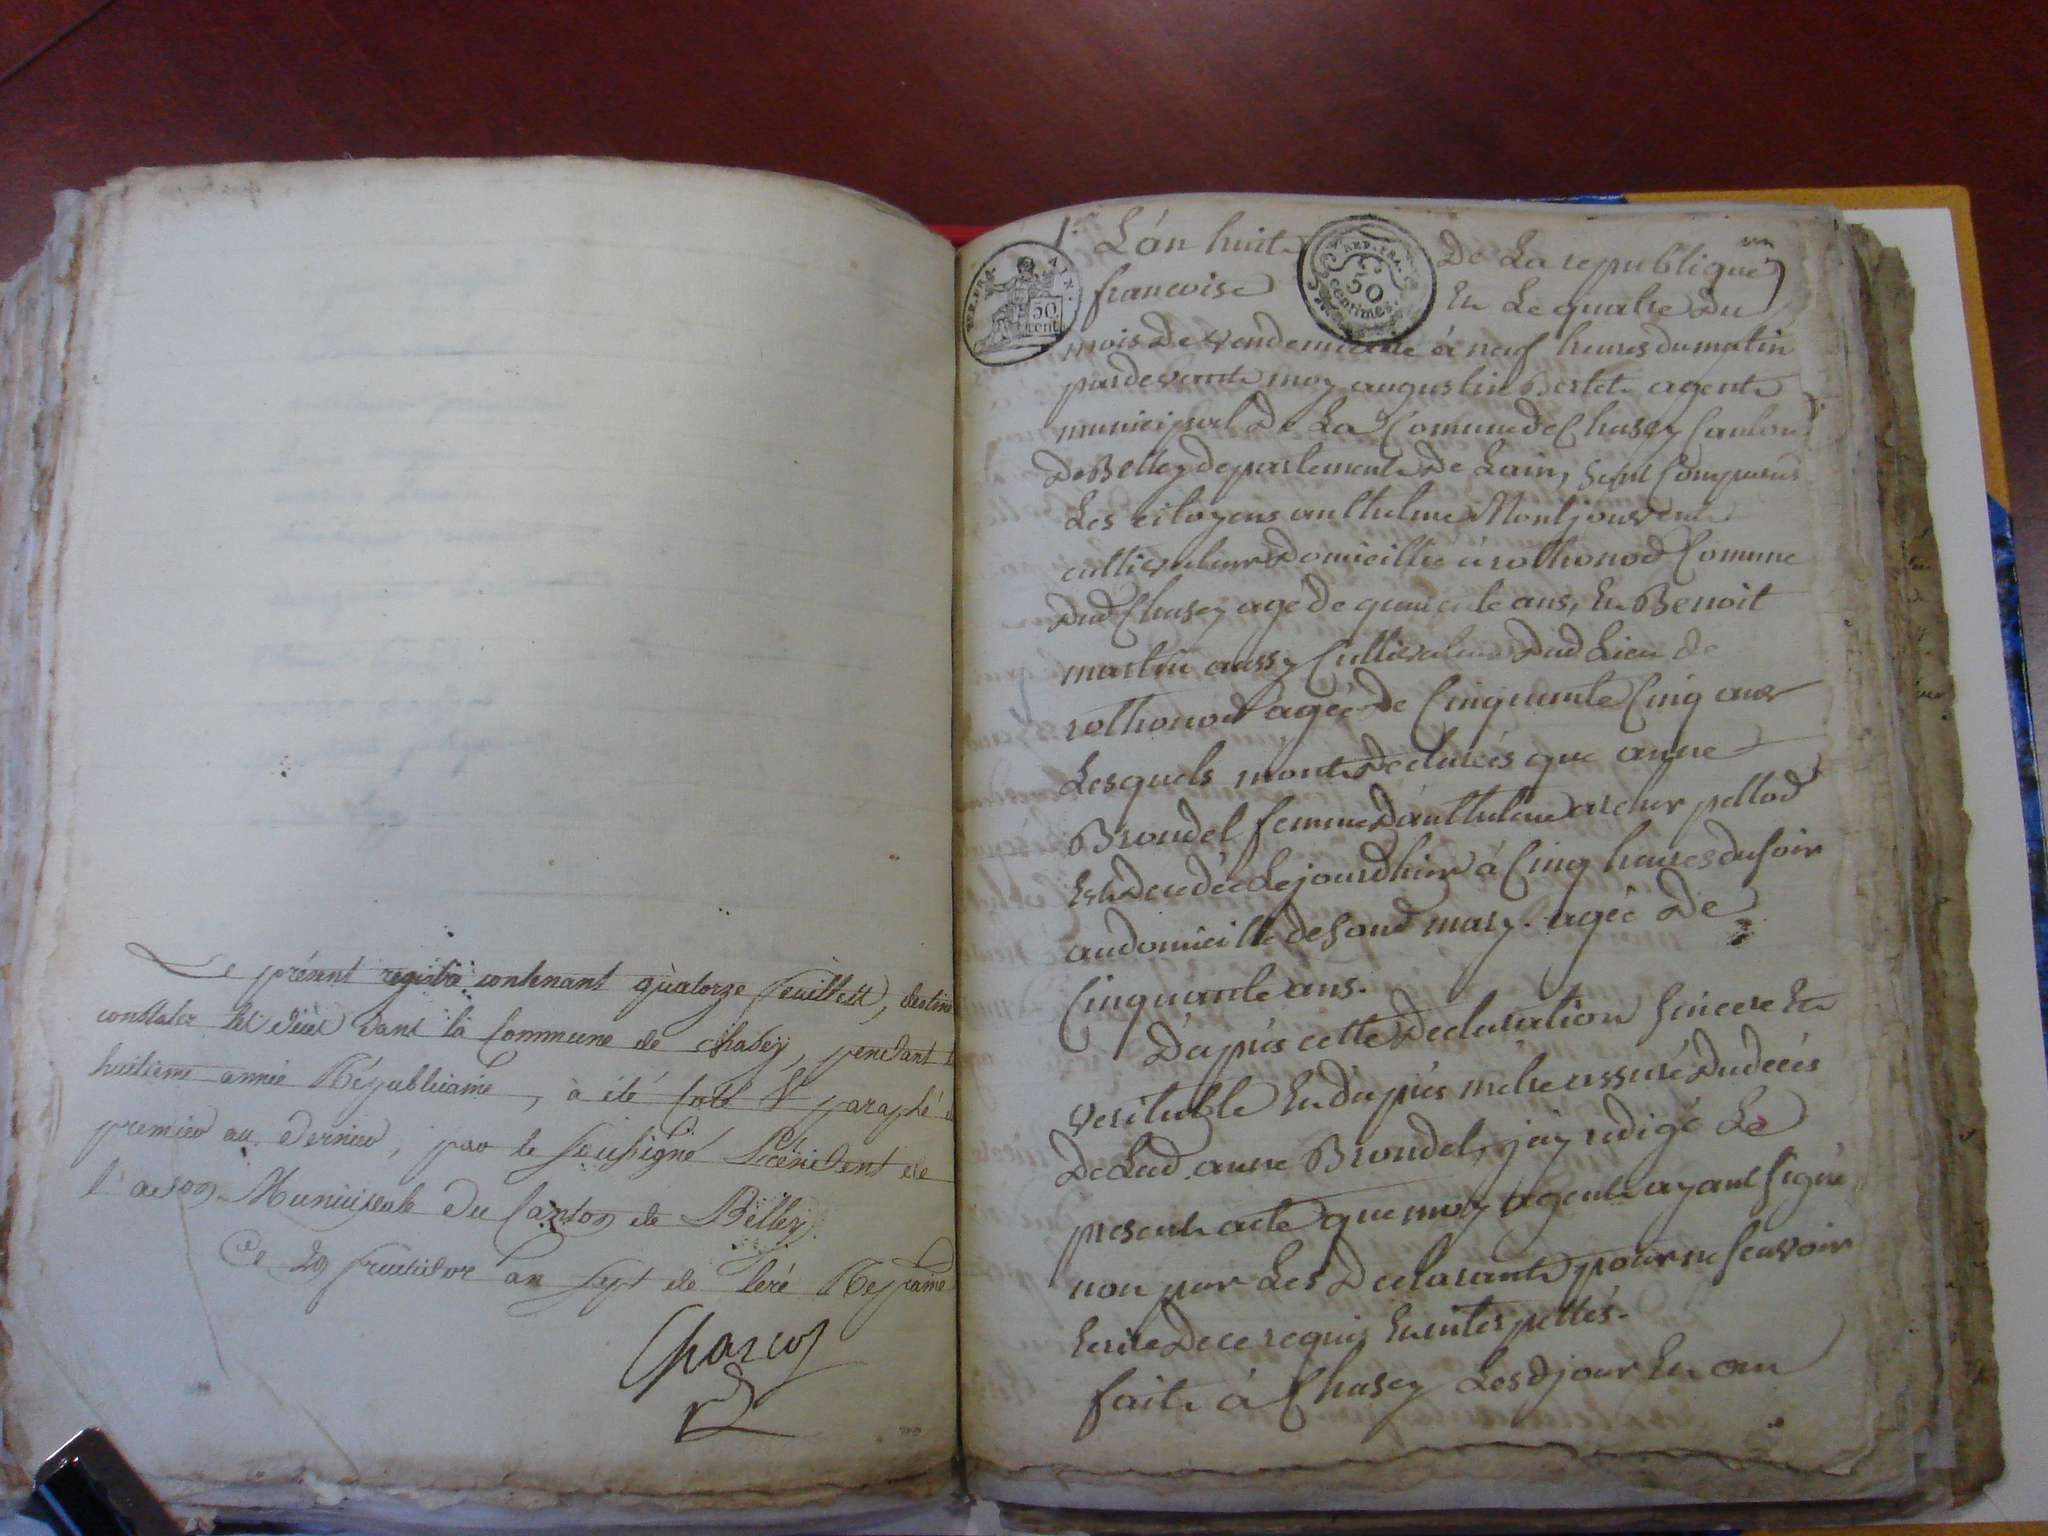 Le présent registre contenant quatorze feuillets, destiné
constater les décès dans la Commune de Chasey, pendant l
huitieme année Républicaine, à été coté & paraphé d
premier au dernier, par le soussigné Président de
l'aon Municipale du Canton de Belley
Ce 29 fructidor an sept de l'ere Repcaine
1er L'an huit De La republique
françoise Et Le quatre Du
mois De vendemiaire à neuf heures du matin
pardevant moy augustin agent
municipal De La Comune de Chasey Canton
De Belley departement De Lain, sont Comparus
Les citoyens anthelme Montjouvent
cultivateur Domicillié à rothonod Comune
Dud Chasey agé de quarente ans, Et Benoit
martin aussy Cultivateur Dud Lieu de
rothonod agée De Cinquante Cinq ans
Lesquels m'ont Declarés que anne
Brondel femme D'anthelme pellod
Est Decedée Le jourd'hier à Cinq heures du soir
au domicille de sond mary. agée De
Cinquante ans.
D'apprés cette Declaration sincere Et
veritable Et D'apprés m'etre assuré Du decés
De Lad. anne Brondel, j'ay redigé Le
present acte que moy agent ayant signé
non par Les Declarants pour ne scavoir
Ecrire De ce requis Et interpellés.
fait à Chasey Lesd jour Et an
REP. FRA.
50
centimes
AIN.
50
cent.